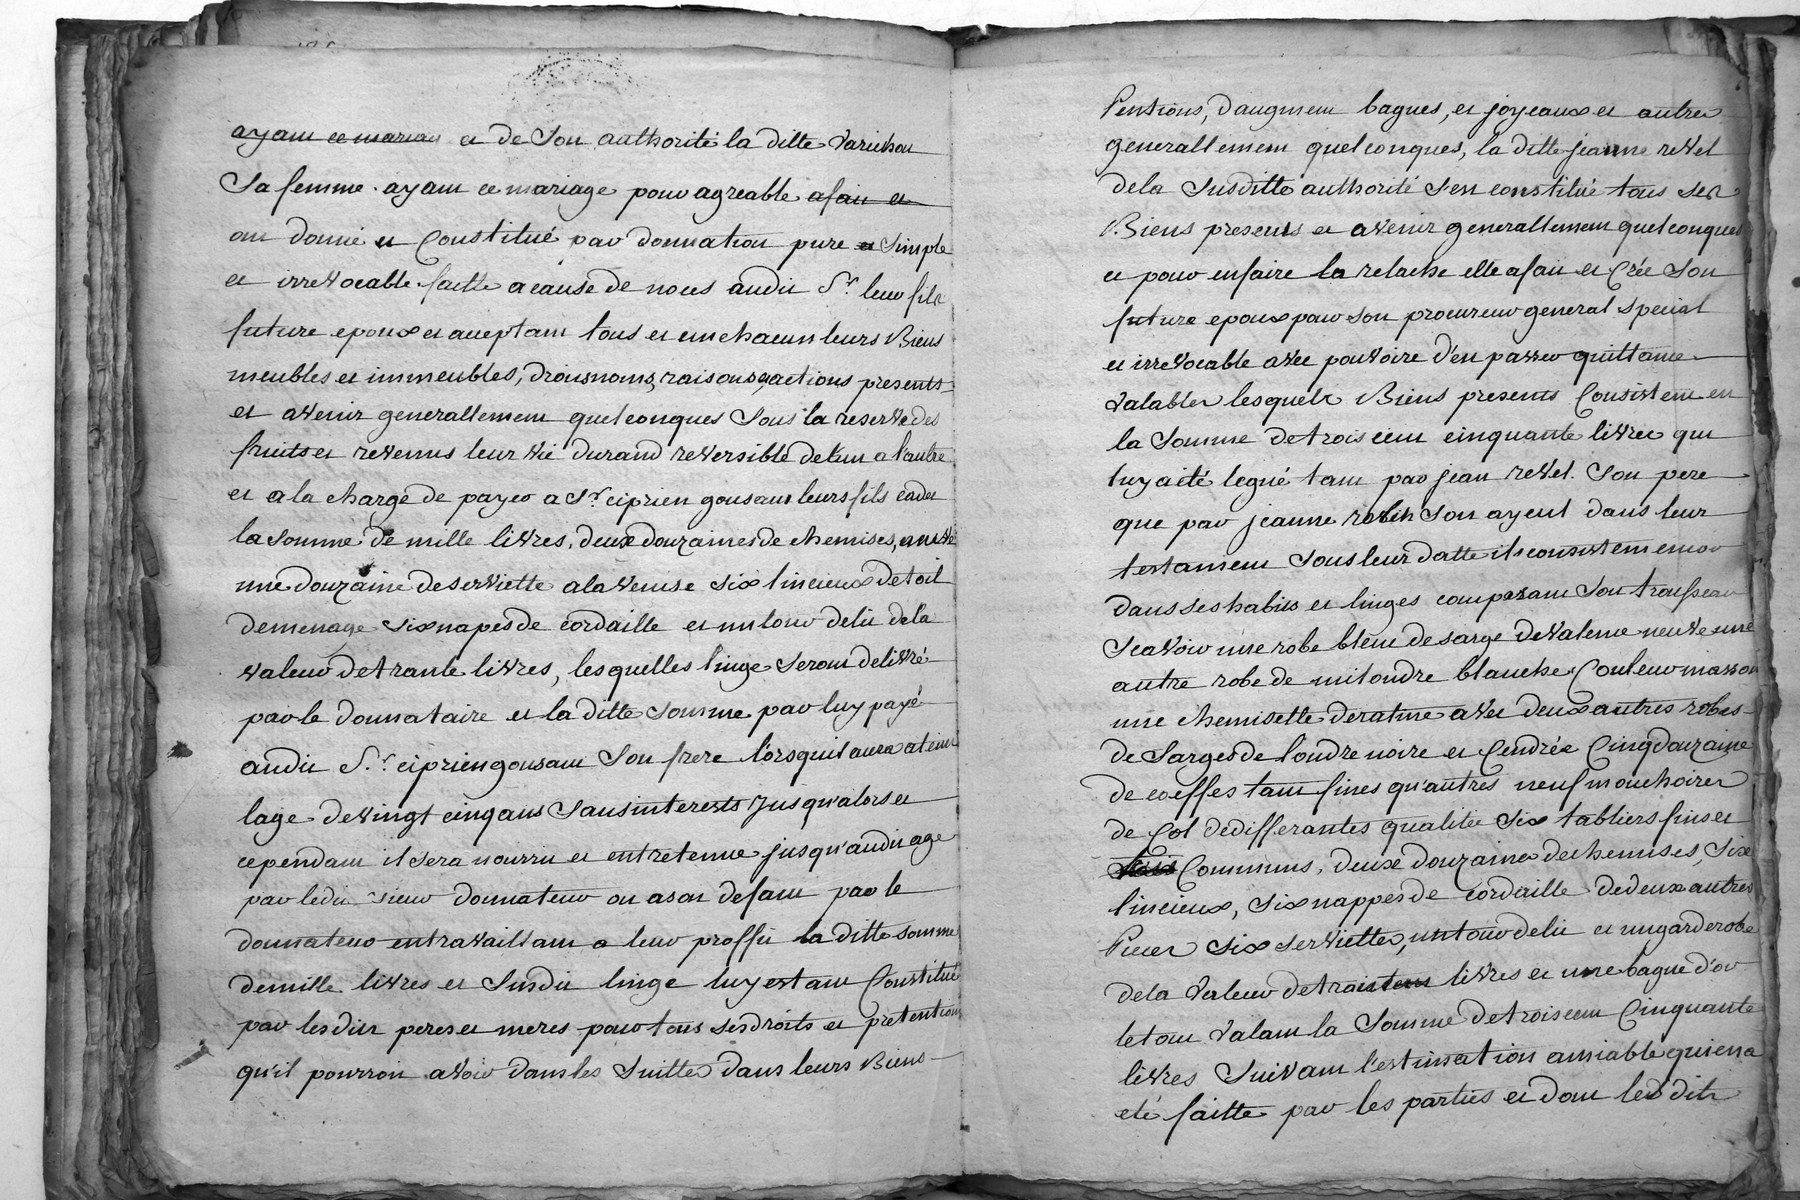 ayant ce maria et de Son authorité la ditte Varichon
Sa femme . ayant ce mariage pour agreable a fait et
ont donné et Constitué par donnation pure et Simple
et irrevocable faitte a cause de noces audit Sr. leur fils
future epoux et aceptant tous et un chacun leurs Biens
meubles et immeubles, droits noms, raisons, actions presents
et avenir generallement quelconques Sous la reserve des
fruits et revenus leur vie durand reversible de lun a l'autre
et a la charge de payer a Sr. ciprien gousant leurs fils cadet
la Somme de mille livres, deux douzaines de chemises,
une douzaine de serviette a la venise six lincieux de toil
de menage six napes de cordaille et un tour de lit de la
valeur de trante livres, lesquelles linge seront delivré
par le donnataire et la ditte Somme par luy payé
audit Sr. ciprien gousant Son frere lorsquil aura ateint
lage de vingt cinq ans Sans interests jusqu'alors et
cependant il sera nourru et entretenue jusqu'audit age
par ledit sieur donnateur ou a son defaut par le
donnateur en travaillant a leur proffit la ditte somme
de mille livres et Susdit linge luy estant Constitué
par lesdits peres et meres pour tous ses droits et pretentions
qu'il pourroit avoir dans les Suittes dans leurs Biens
Pentions, d'augment bagues, et joyeaux et autres
generallement quelconques, la ditte jeanne revel
de la Susditte authorité s'en constitué tous ses
Biens presents et avenir generallement quelconques
et pour en faire la relache elle a fait et Crée Son
future epoux pour son procureur general special
et irrevocable avec pouvoire d'en passer quittance
Valables lesquels Biens presents Consistent en
la Somme de trois cent cinquante livres qui
luy a été legué tant par jean revel Son pere
que par jeanne robin Son ayeul dans leur
testament Sous leur datte ils consistent encor
dans ses habits et linges composant Son trousseau
Scavoir une robe bleue de sarge de valence neuve une
autre robe de mi londre blanche Couleur marron
une chemisette de ratine avec deux autres robes
de Sarges de londre noire et Cendrée Cinq douzaine
de coeffes tant fines qu'autres neuf mouchoires
de Col de differantes qualitées Six tabliers fins et
Communs, deux douzaines de chemises, Six
lincieux, Six nappes de cordaille de deux autres
Pieces Six serviettes, un tour de lit et un garderobe
de la Valeur de trois livres et une bague d'or
le tout Valant la Somme de trois cent Cinquante
livres Suivant l'estimation amiable qui en a
eté faitte par les parties et dont les dits